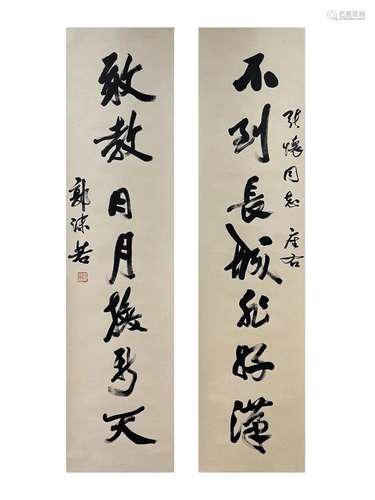 不到長城非好漢
張懷同志 座右
敢教日月換新天
郭沫若